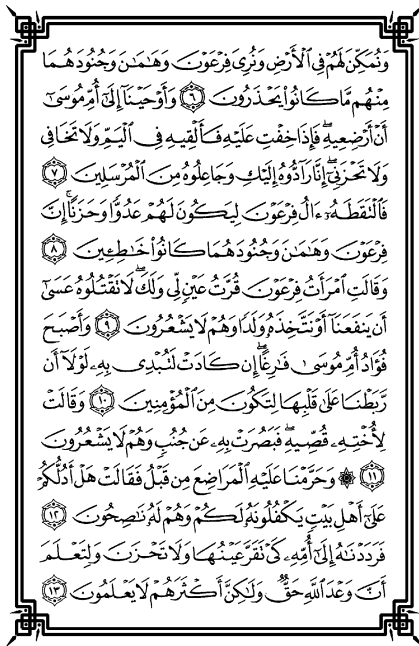 وَنُمَكِّنَ لَهُمْ فِي ٱلْأَرْضِ وَنُرِيَ فِرْعَوْنَ وَهَـٰمَـٰنَ وَجُنُودَهُمَا
مِنْهُم مَّا كَانُوا۟ يَحْذَرُونَ ٦ وَأَوْحَيْنَآ إِلَىٰٓ أُمِّ مُوسَىٰٓ
أَنْ أَرْضِعِيهِ ۖ فَإِذَا خِفْتِ عَلَيْهِ فَأَلْقِيهِ فِي ٱلْيَمِّ وَلَا تَخَافِي
وَلَا تَحْزَنِيٓ ۖ إِنَّا رَآدُّوهُ إِلَيْكِ وَجَاعِلُوهُ مِنَ ٱلْمُرْسَلِينَ ٧
فَٱلْتَقَطَهُۥٓ ءَالُ فِرْعَوْنَ لِيَكُونَ لَهُمْ عَدُوًّا وَحَزَنًا ۗ إِنَّ
فِرْعَوْنَ وَهَـٰمَـٰنَ وَجُنُودَهُمَا كَانُوا۟ خَـٰطِـِٔينَ ٨
وَقَالَتِ ٱمْرَأَتُ فِرْعَوْنَ قُرَّتُ عَيْنٍ لِّي وَلَكَ ۖ لَا تَقْتُلُوهُ عَسَىٰٓ
أَن يَنفَعَنَآ أَوْ نَتَّخِذَهُۥ وَلَدًا وَهُمْ لَا يَشْعُرُونَ ٩ وَأَصْبَحَ
فُؤَادُ أُمِّ مُوسَىٰ فَـٰرِغًا ۖ إِن كَادَتْ لَتُبْدِي بِهِۦ لَوْلَآ أَن
رَّبَطْنَا عَلَىٰ قَلْبِهَا لِتَكُونَ مِنَ ٱلْمُؤْمِنِينَ ١٠ وَقَالَتْ
لِأُخْتِهِۦ قُصِّيهِ ۖ فَبَصُرَتْ بِهِۦ عَن جُنُبٍ وَهُمْ لَا يَشْعُرُونَ
١١ ۞ وَحَرَّمْنَا عَلَيْهِ ٱلْمَرَاضِعَ مِن قَبْلُ فَقَالَتْ هَلْ أَدُلُّكُمْ
عَلَىٰٓ أَهْلِ بَيْتٍ يَكْفُلُونَهُۥ لَكُمْ وَهُمْ لَهُۥ نَـٰصِحُونَ ١٢
فَرَدَدْنَـٰهُ إِلَىٰٓ أُمِّهِۦ كَيْ تَقَرَّ عَيْنُهَا وَلَا تَحْزَنَ وَلِتَعْلَمَ
أَنَّ وَعْدَ ٱللَّهِ حَقٌّ وَلَـٰكِنَّ أَكْثَرَهُمْ لَا يَعْلَمُونَ ١٣